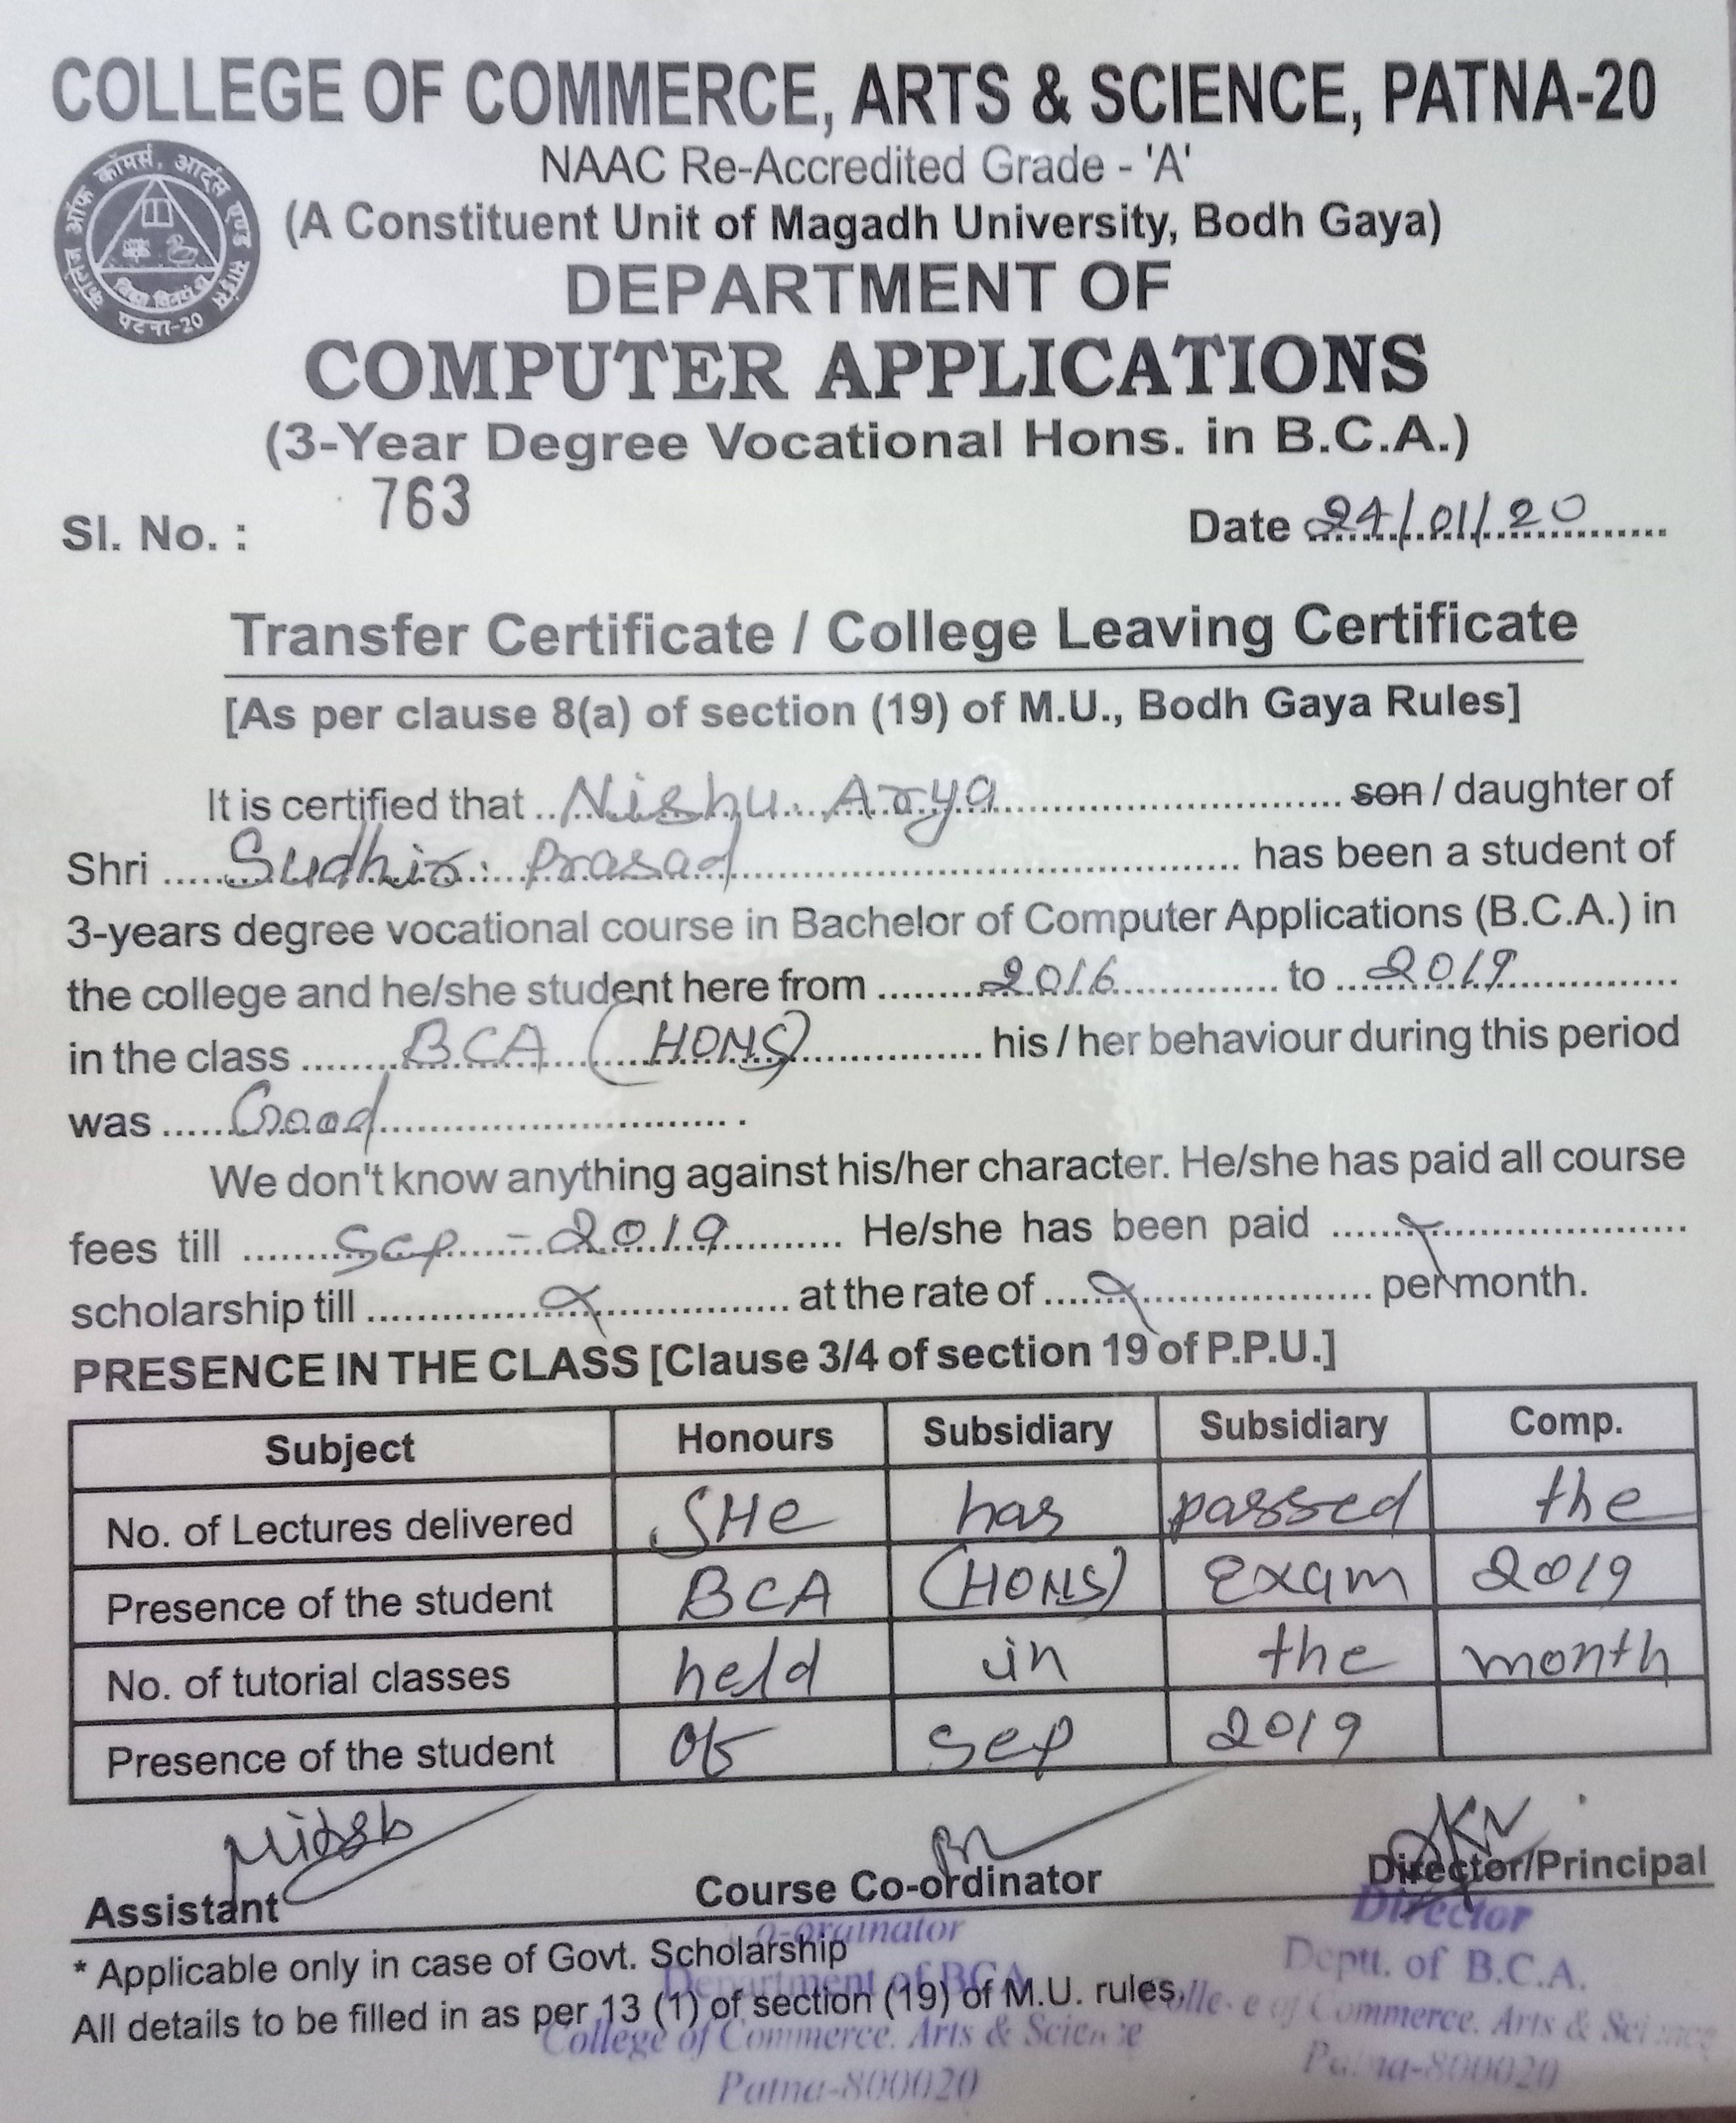 COLLEGE OF COMMERCE, ARTS & SCIENCE, PATNA-20
NAAC Re-Accredited Grade - 'A'
(A Constituent Unit of Magadh University, Bodh Gaya)
कॉलेज ऑफ कॉमर्स, आर्ट्स एण्ड साइंस
पटना-20
DEPARTMENT OF
COMPUTER APPLICATIONS
(3-Year Degree Vocational Hons. in B.C.A.)
Sl. No. : 763 Date 24/01/20
Transfer Certificate / College Leaving Certificate
[As per clause 8(a) of section (19) of M.U., Bodh Gaya Rules]
It is certified that Nishu Arya son / daughter of
Shri Sudhir Prasad has been a student of
3-years degree vocational course in Bachelor of Computer Applications (B.C.A.) in
the college and he/she student here from 2016 to 2019
in the class BCA (HONS) his / her behaviour during this period
was Good .
We don't know anything against his/her character. He/she has paid all course
fees till Sep - 2019 He/she has been paid
scholarship till at the rate of per month.
PRESENCE IN THE CLASS [Clause 3/4 of section 19 of P.P.U.]
Subject Honours Subsidiary Subsidiary Comp.
No. of Lectures delivered SHe has passed the
Presence of the student BCA (HONS) Exam 2019
No. of tutorial classes held in the month
Presence of the student of Sep 2019
Assistant Course Co-ordinator Director/Principal
Director
* Applicable only in case of Govt. Scholarship
o-ordinator
Department of BCA
Deptt. of B.C.A.
All details to be filled in as per 13 (1) of section (19) of M.U. rules.
College of Commerce, Arts & Science
College of Commerce. Arts & Science
Patna-800020
Patna-800020